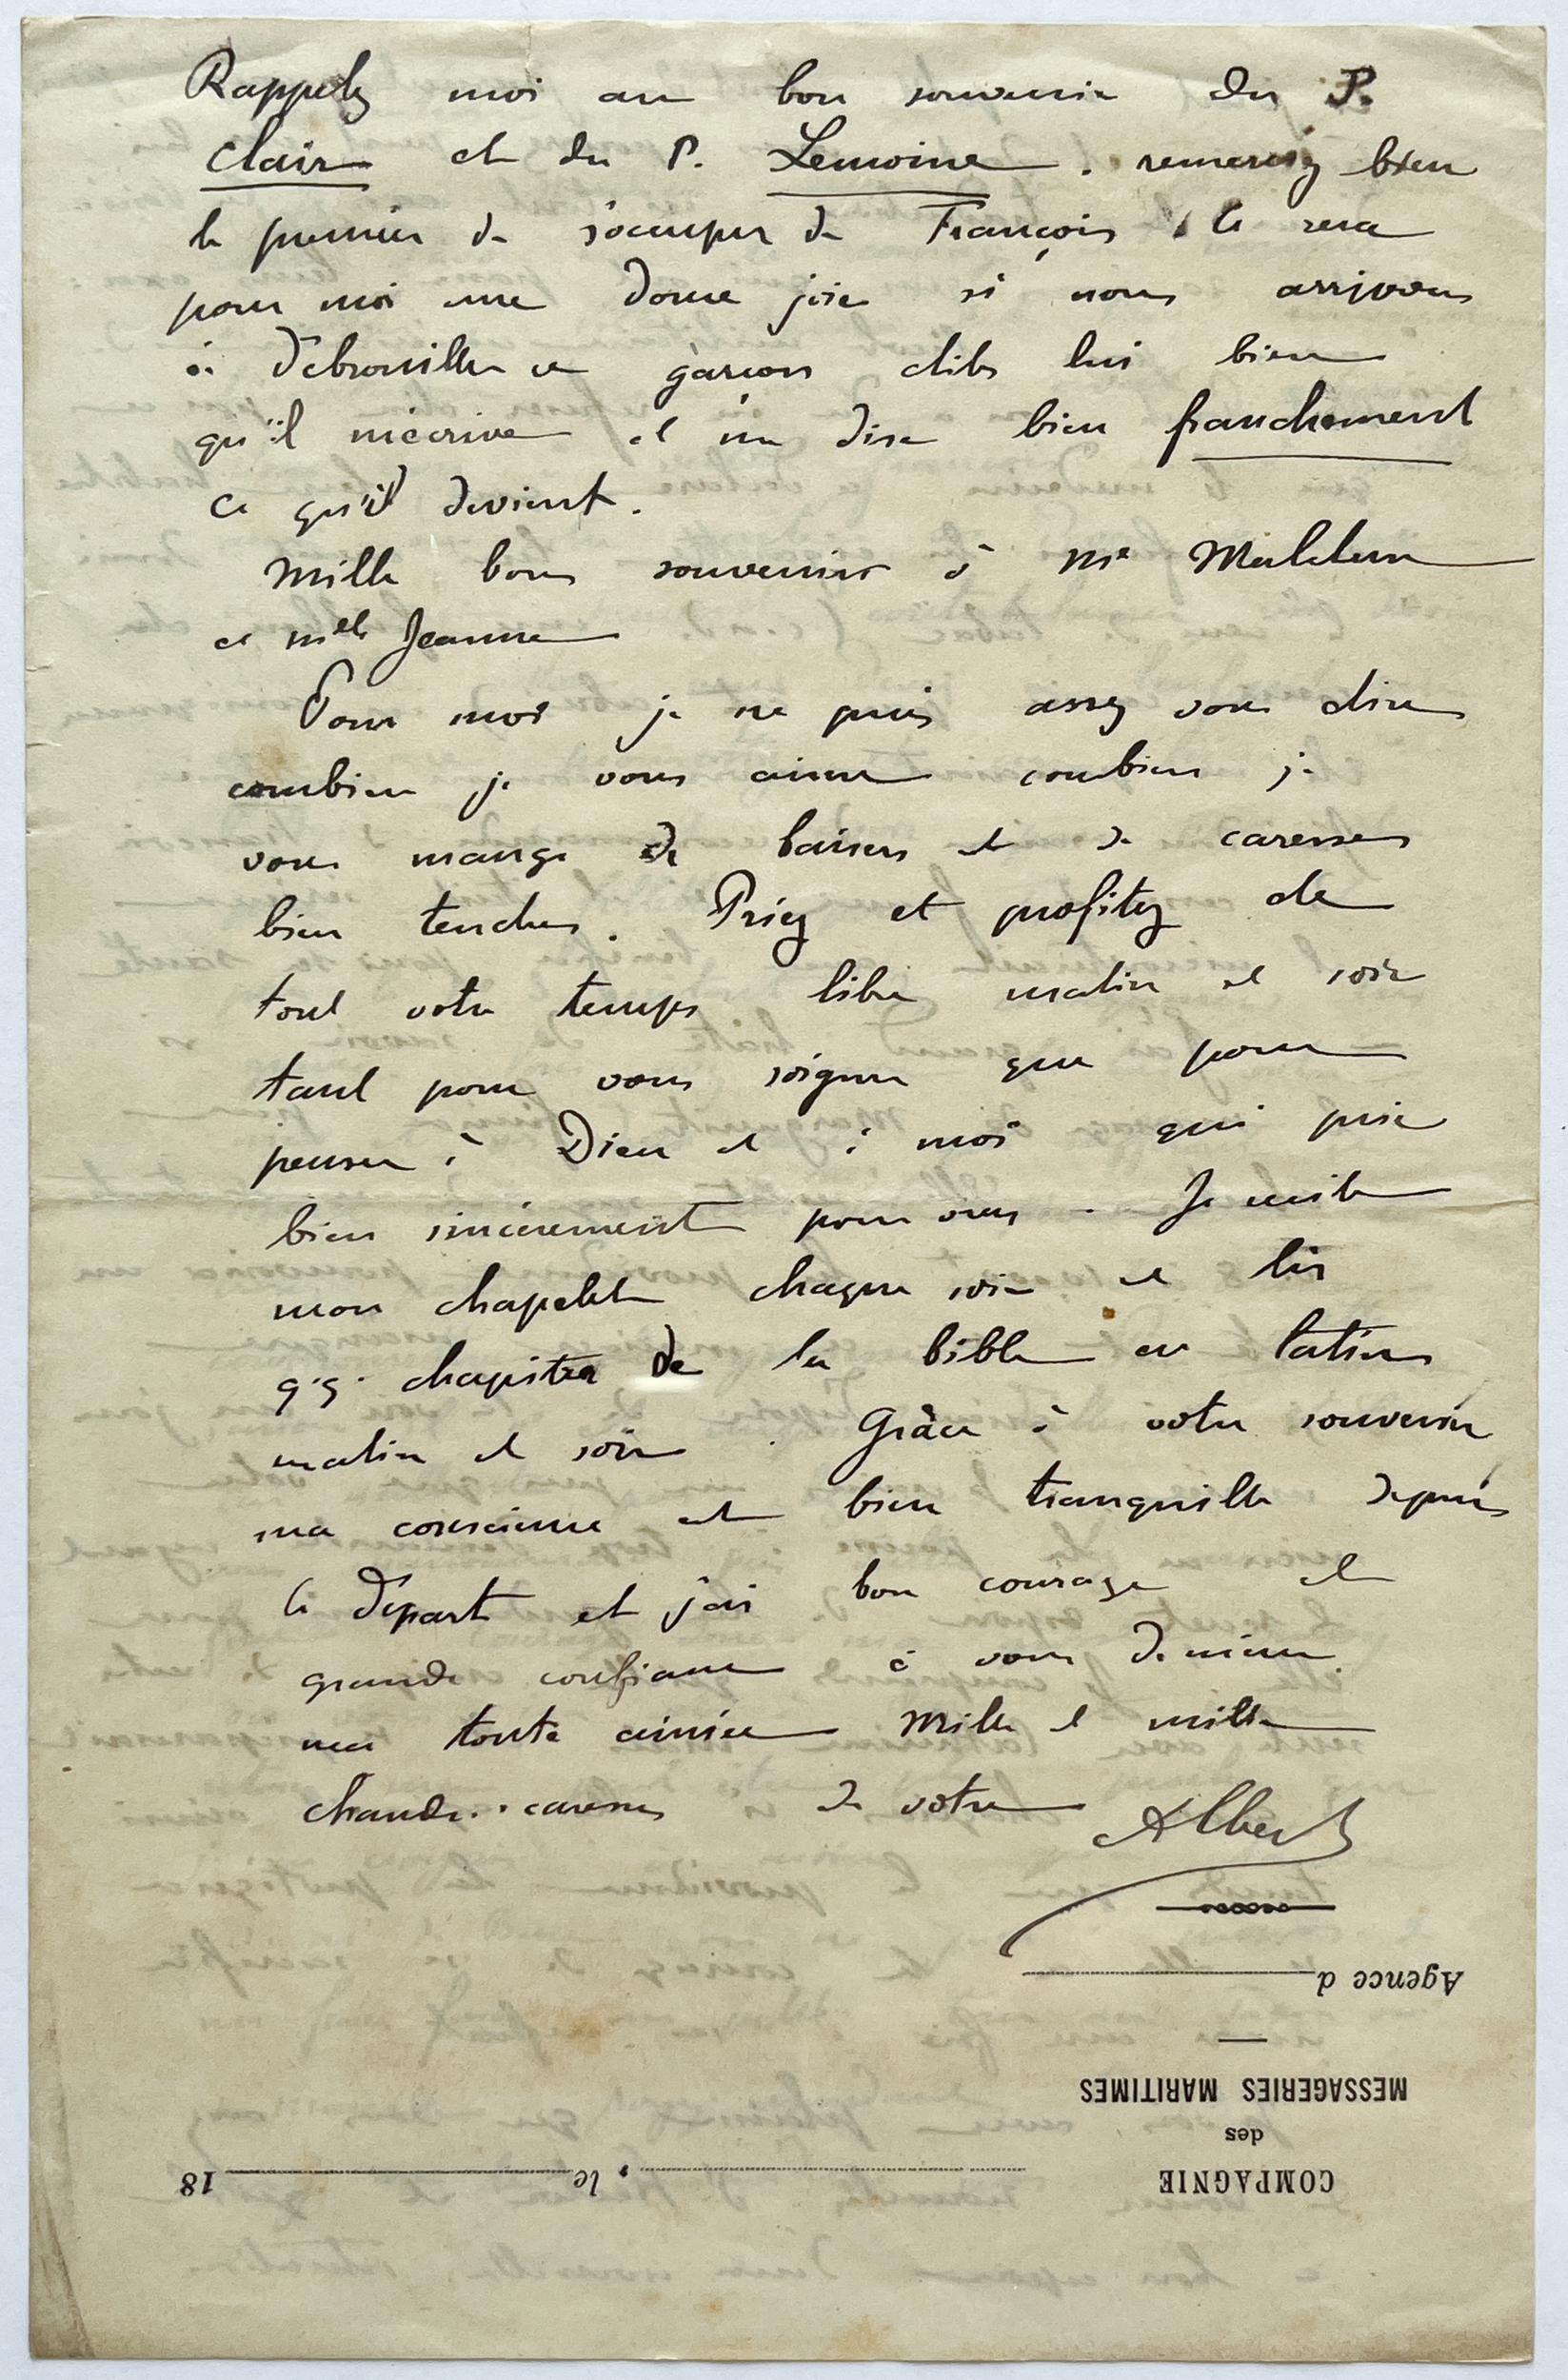 Rappelez moi au bon souvenir du P.
Clair et du P. Lemoine. remerciez bien
le premier de s'occuper de François ce sera
pour moi une douce joie si nous arrivons
à débrouiller ce garçon dites lui bien
qu'il m'écrive et me dise bien franchement
ce qu'il devient.
Mille bons souvenirs à Me
et Melle Jeanne
Pour moi je ne puis assez vous dire
combien je vous aime combien je
vous mange de baisers et de caresses
bien tendres. Priez et profitez de
tout votre temps libre matin et soir
tant pour vous soigner que pour
penser à Dieu et à moi qui prie
bien sincèrement pour vous. Je récite
mon chapelet chaque soir et lis
q.q. chapitres de la bible en latin
matin et soir. Grâce à votre souvenir
ma conscience est bien tranquille depuis
le départ et j'ai bon courage et
grande confiance à vous de même
ma toute aimée Mille et mille
chaudes caresses de votre Albert
Agence d
MESSAGERIES MARITIMES
des
COMPAGNIE
, le 18